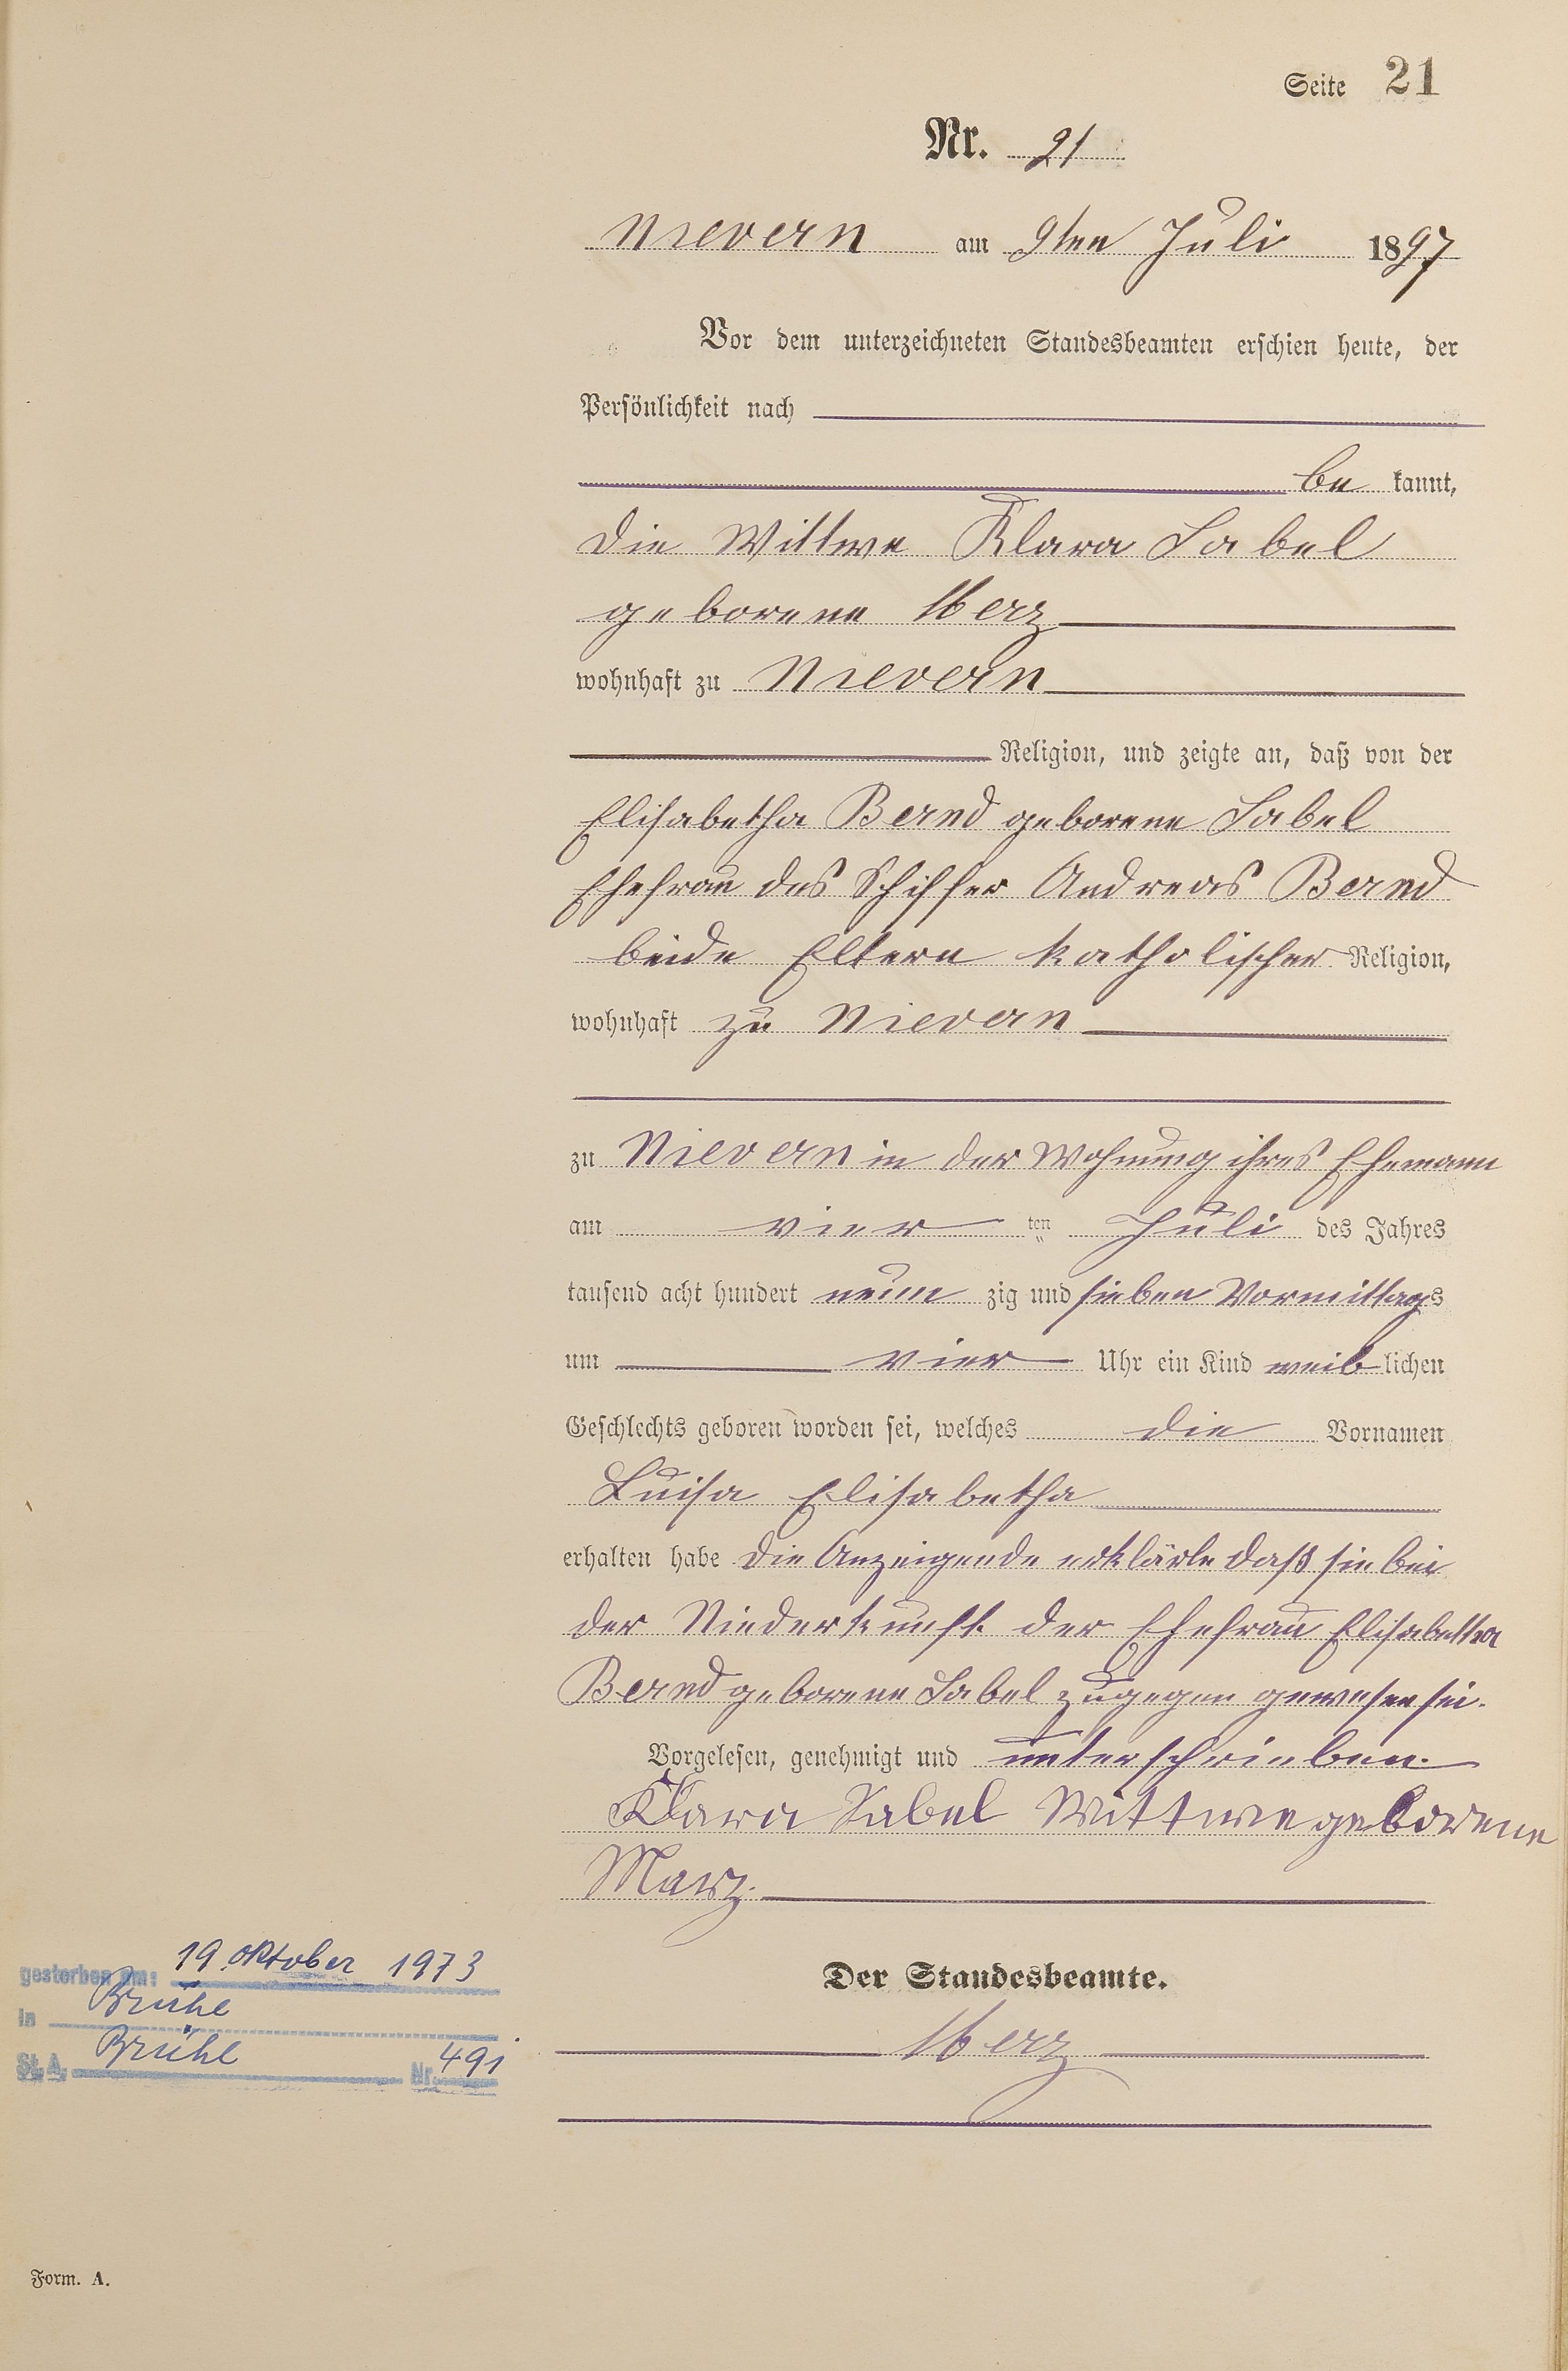 Seite 21
Nr. 21
Nievern am 9ten Juli 1897
Vor dem unterzeichneten Standesbeamten erschien heute, der
Persönlichkeit nach
be kannt,
die Wittwe Klara Sabel
geborene Merz
wohnhaft zu Nievern
Religion, und zeigte an, daß von der
Elisabetha Bernd geborene Sabel
Ehefrau des Schiffer Andreas Bernd
beide Eltern katholischer Religion,
wohnhaft zu Nievern
zu Nievern in der Wohnung ihres Ehemann
am vier ten Juli des Jahres
tausend acht hundert neun zig und sieben Vormittags
um vier Uhr ein Kind weib lichen
Geschlechts geboren worden sei, welches die Vornamen
Luisa Elisabetha
erhalten habe die Anzeigende erklärte daß sie bei
der Niederkunft der Ehefrau Elisabetha
Bernd geborene Sabel zugegen gewesen sei.
Vorgelesen, genehmigt und unterschrieben.
Klara Sabel Wittwe geborene
Marz.
Der Standesbeamte.
Merz
gestorben am: 19. Oktober 1973
in Brühl
St. A. Brühl Nr. 491
Form. A.